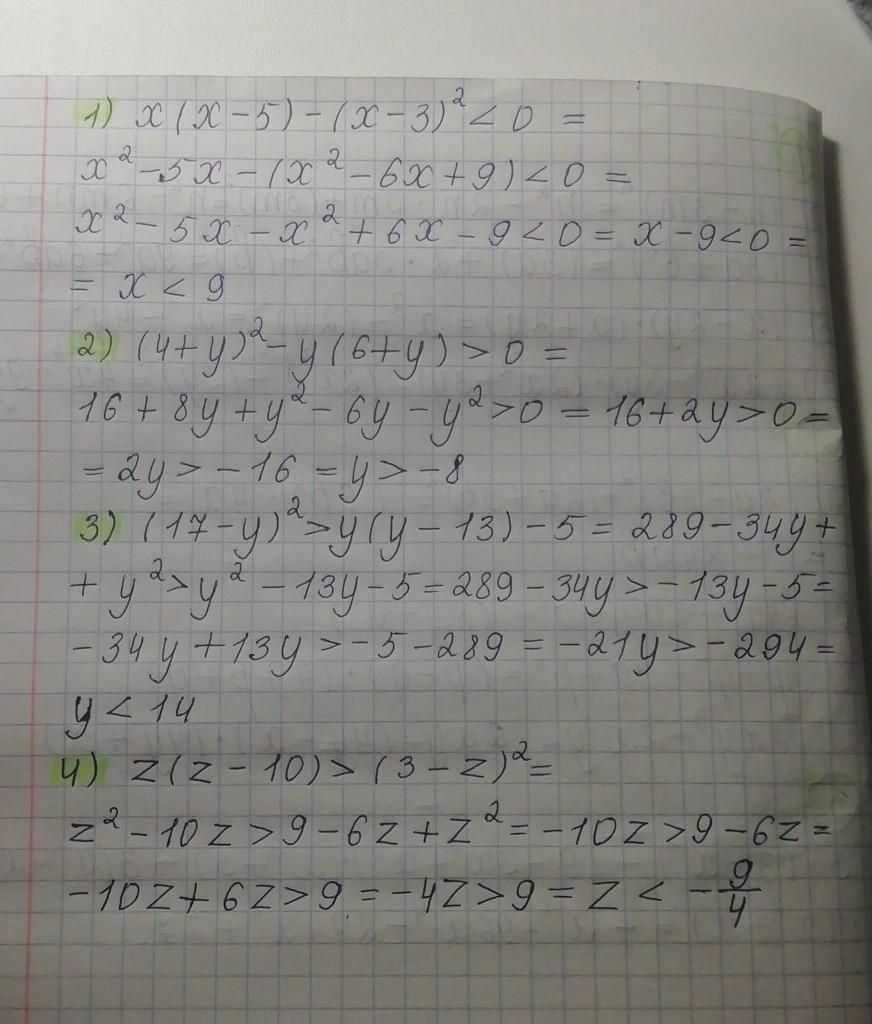 1) x(x-5)-(x-3)²<0 =
x²-5x-(x²-6x+9)<0 =
x²-5x-x²+6x-9<0 = x-9<0 =
= x<9
2) (4+y)²-y(6+y)>0 =
16+8y+y²-6y-y²>0 = 16+2y>0 =
= 2y>-16 = y>-8
3) (17-y)²>y(y-13)-5 = 289-34y+
+y²>y²-13y-5 = 289-34y>-13y-5 =
-34y+13y>-5-289 = -21y>-294 =
y<14
4) z(z-10)>(3-z)² =
z²-10z>9-6z+z² = -10z>9-6z =
-10z+6z>9 = -4z>9 = z<-9/4